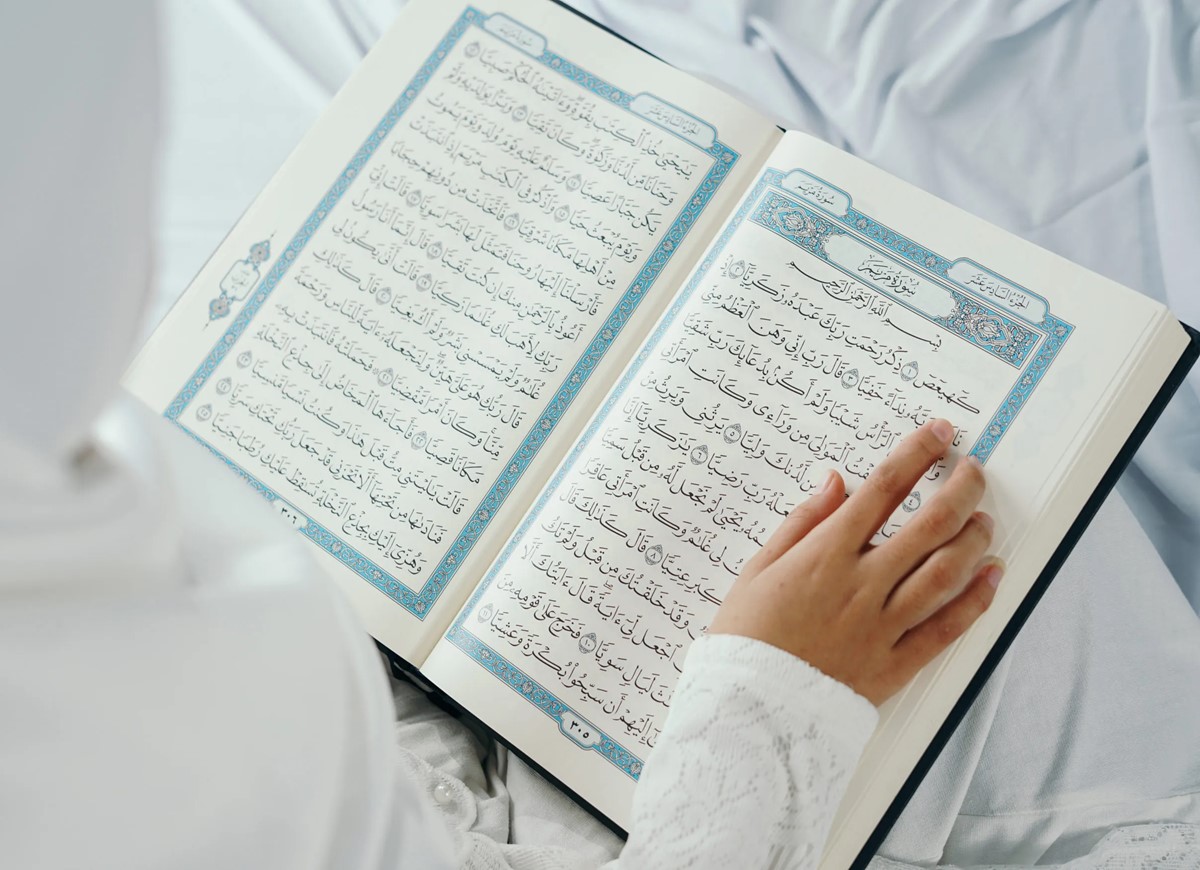 سُورَةُ مَرْيَمَ
الجُزْءُ السَّادِسَ عَشَرَ
سُورَةُ مَرْيَمَ
بِسْمِ ٱللَّهِ ٱلرَّحْمَٰنِ ٱلرَّحِيمِ
كٓهيعٓصٓ ١ ذِكْرُ رَحْمَتِ رَبِّكَ عَبْدَهُۥ زَكَرِيَّآ ٢
رَبَّهُۥ نِدَآءً خَفِيًّا ٣ قَالَ رَبِّ إِنِّى وَهَنَ ٱلْعَظْمُ مِنِّى
ٱلرَّأْسُ شَيْبًا وَلَمْ أَكُنۢ بِدُعَآئِكَ رَبِّ شَقِيًّا
٤ خِفْتُ ٱلْمَوَٰلِىَ مِن وَرَآءِى وَكَانَتِ ٱمْرَأَتِى
مِن لَّدُنكَ وَلِيًّا ٥ يَرِثُنِى وَيَرِثُ مِنْ
رَبِّ رَضِيًّا ٦ يَٰزَكَرِيَّآ إِنَّا
ٱسْمُهُۥ يَحْيَىٰ لَمْ نَجْعَل لَّهُۥ مِن قَبْلُ سَمِيًّا
لِى غُلَٰمٌ وَكَانَتِ ٱمْرَأَتِى عَاقِرًا
ٱلْكِبَرِ عِتِيًّا ٨ قَالَ كَذَٰلِكَ قَالَ
وَقَدْ خَلَقْتُكَ مِن قَبْلُ وَلَمْ تَكُ
ٱجْعَل لِّىٓ ءَايَةً قَالَ ءَايَتُكَ أَلَّا
لَيَالٍ سَوِيًّا ١٠ فَخَرَجَ عَلَىٰ قَوْمِهِۦ مِنَ
إِلَيْهِمْ أَن سَبِّحُوا۟ بُكْرَةً وَعَشِيًّا ١١
٣٠٥
سُورَةُ مَرْيَمَ
الجُزْءُ السَّادِسَ عَشَرَ
يَٰيَحْيَىٰ خُذِ ٱلْكِتَٰبَ بِقُوَّةٍ وَءَاتَيْنَٰهُ ٱلْحُكْمَ صَبِيًّا ١٢
وَحَنَانًا مِّن لَّدُنَّا وَزَكَوٰةً وَكَانَ تَقِيًّا ١٣ وَبَرًّۢا بِوَٰلِدَيْهِ وَلَمْ
يَكُن جَبَّارًا عَصِيًّا ١٤ وَسَلَٰمٌ عَلَيْهِ يَوْمَ وُلِدَ وَيَوْمَ يَمُوتُ
وَيَوْمَ يُبْعَثُ حَيًّا ١٥ وَٱذْكُرْ فِى ٱلْكِتَٰبِ مَرْيَمَ إِذِ ٱنتَبَذَتْ
مِنْ أَهْلِهَا مَكَانًا شَرْقِيًّا ١٦ فَٱتَّخَذَتْ مِن دُونِهِمْ حِجَابًا
فَأَرْسَلْنَآ إِلَيْهَا رُوحَنَا فَتَمَثَّلَ لَهَا بَشَرًا سَوِيًّا ١٧ قَالَتْ إِنِّىٓ
أَعُوذُ بِٱلرَّحْمَٰنِ مِنكَ إِن كُنتَ تَقِيًّا ١٨ قَالَ إِنَّمَآ أَنَا۠ رَسُولُ
رَبِّكِ لِأَهَبَ لَكِ غُلَٰمًا زَكِيًّا ١٩ قَالَتْ أَنَّىٰ يَكُونُ لِى
غُلَٰمٌ وَلَمْ يَمْسَسْنِى بَشَرٌ وَلَمْ أَكُ بَغِيًّا ٢٠ قَالَ كَذَٰلِكِ
قَالَ رَبُّكِ هُوَ عَلَىَّ هَيِّنٌ وَلِنَجْعَلَهُۥٓ ءَايَةً لِّلنَّاسِ وَرَحْمَةً
مِّنَّا وَكَانَ أَمْرًا مَّقْضِيًّا ٢١ فَحَمَلَتْهُ فَٱنتَبَذَتْ بِهِۦ
مَكَانًا قَصِيًّا ٢٢ فَأَجَآءَهَا ٱلْمَخَاضُ إِلَىٰ جِذْعِ ٱلنَّخْلَةِ
قَالَتْ يَٰلَيْتَنِى مِتُّ قَبْلَ هَٰذَا وَكُنتُ نَسْيًا مَّنسِيًّا ٢٣
فَنَادَىٰهَا مِن تَحْتِهَآ أَلَّا تَحْزَنِى قَدْ جَعَلَ رَبُّكِ تَحْتَكِ سَرِيًّا ٢٤
وَهُزِّىٓ إِلَيْكِ بِجِذْعِ ٱلنَّخْلَةِ تُسَٰقِطْ عَلَيْكِ رُطَبًا جَنِيًّا ٢٥
٣٠٦